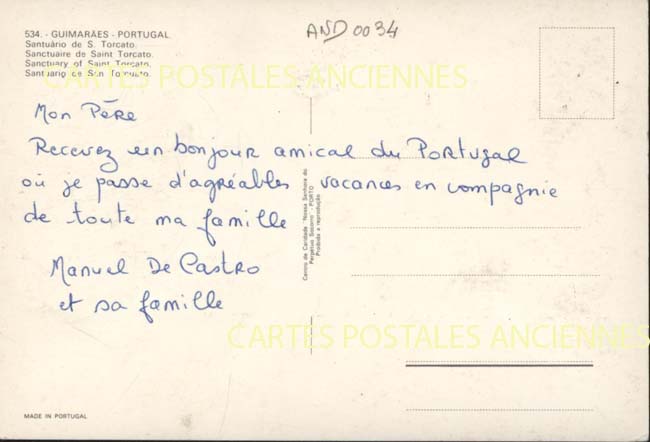 AND 0034
534. - GUIMARÃES - PORTUGAL
Santuário de S. Torcato.
Sanctuaire de Saint Torcato.
Sanctuary of Saint Torcato.
Santuario de San Torcuato.
CARTES POSTALES ANCIENNES
Mon Père
Recevez un bonjour amical du Portugal
où je passe d'agréables vacances en compagnie
de toute ma famille
Manuel De Castro
et sa famille
Centro de Caridade "Nossa Senhora do
Perpétuo Socorro" - PORTO
Proibida a reprodução
CARTES POSTALES ANCIENNES
MADE IN PORTUGAL